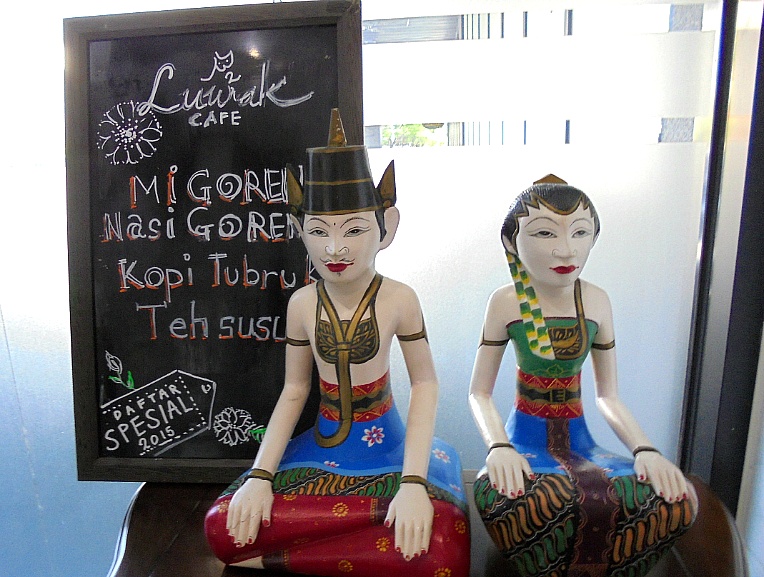 Luwak
CAFE
Mi GOREN
Nasi GOREN
Kopi Tubruk
Teh susu
DAFTAR
SPESIAL
2015